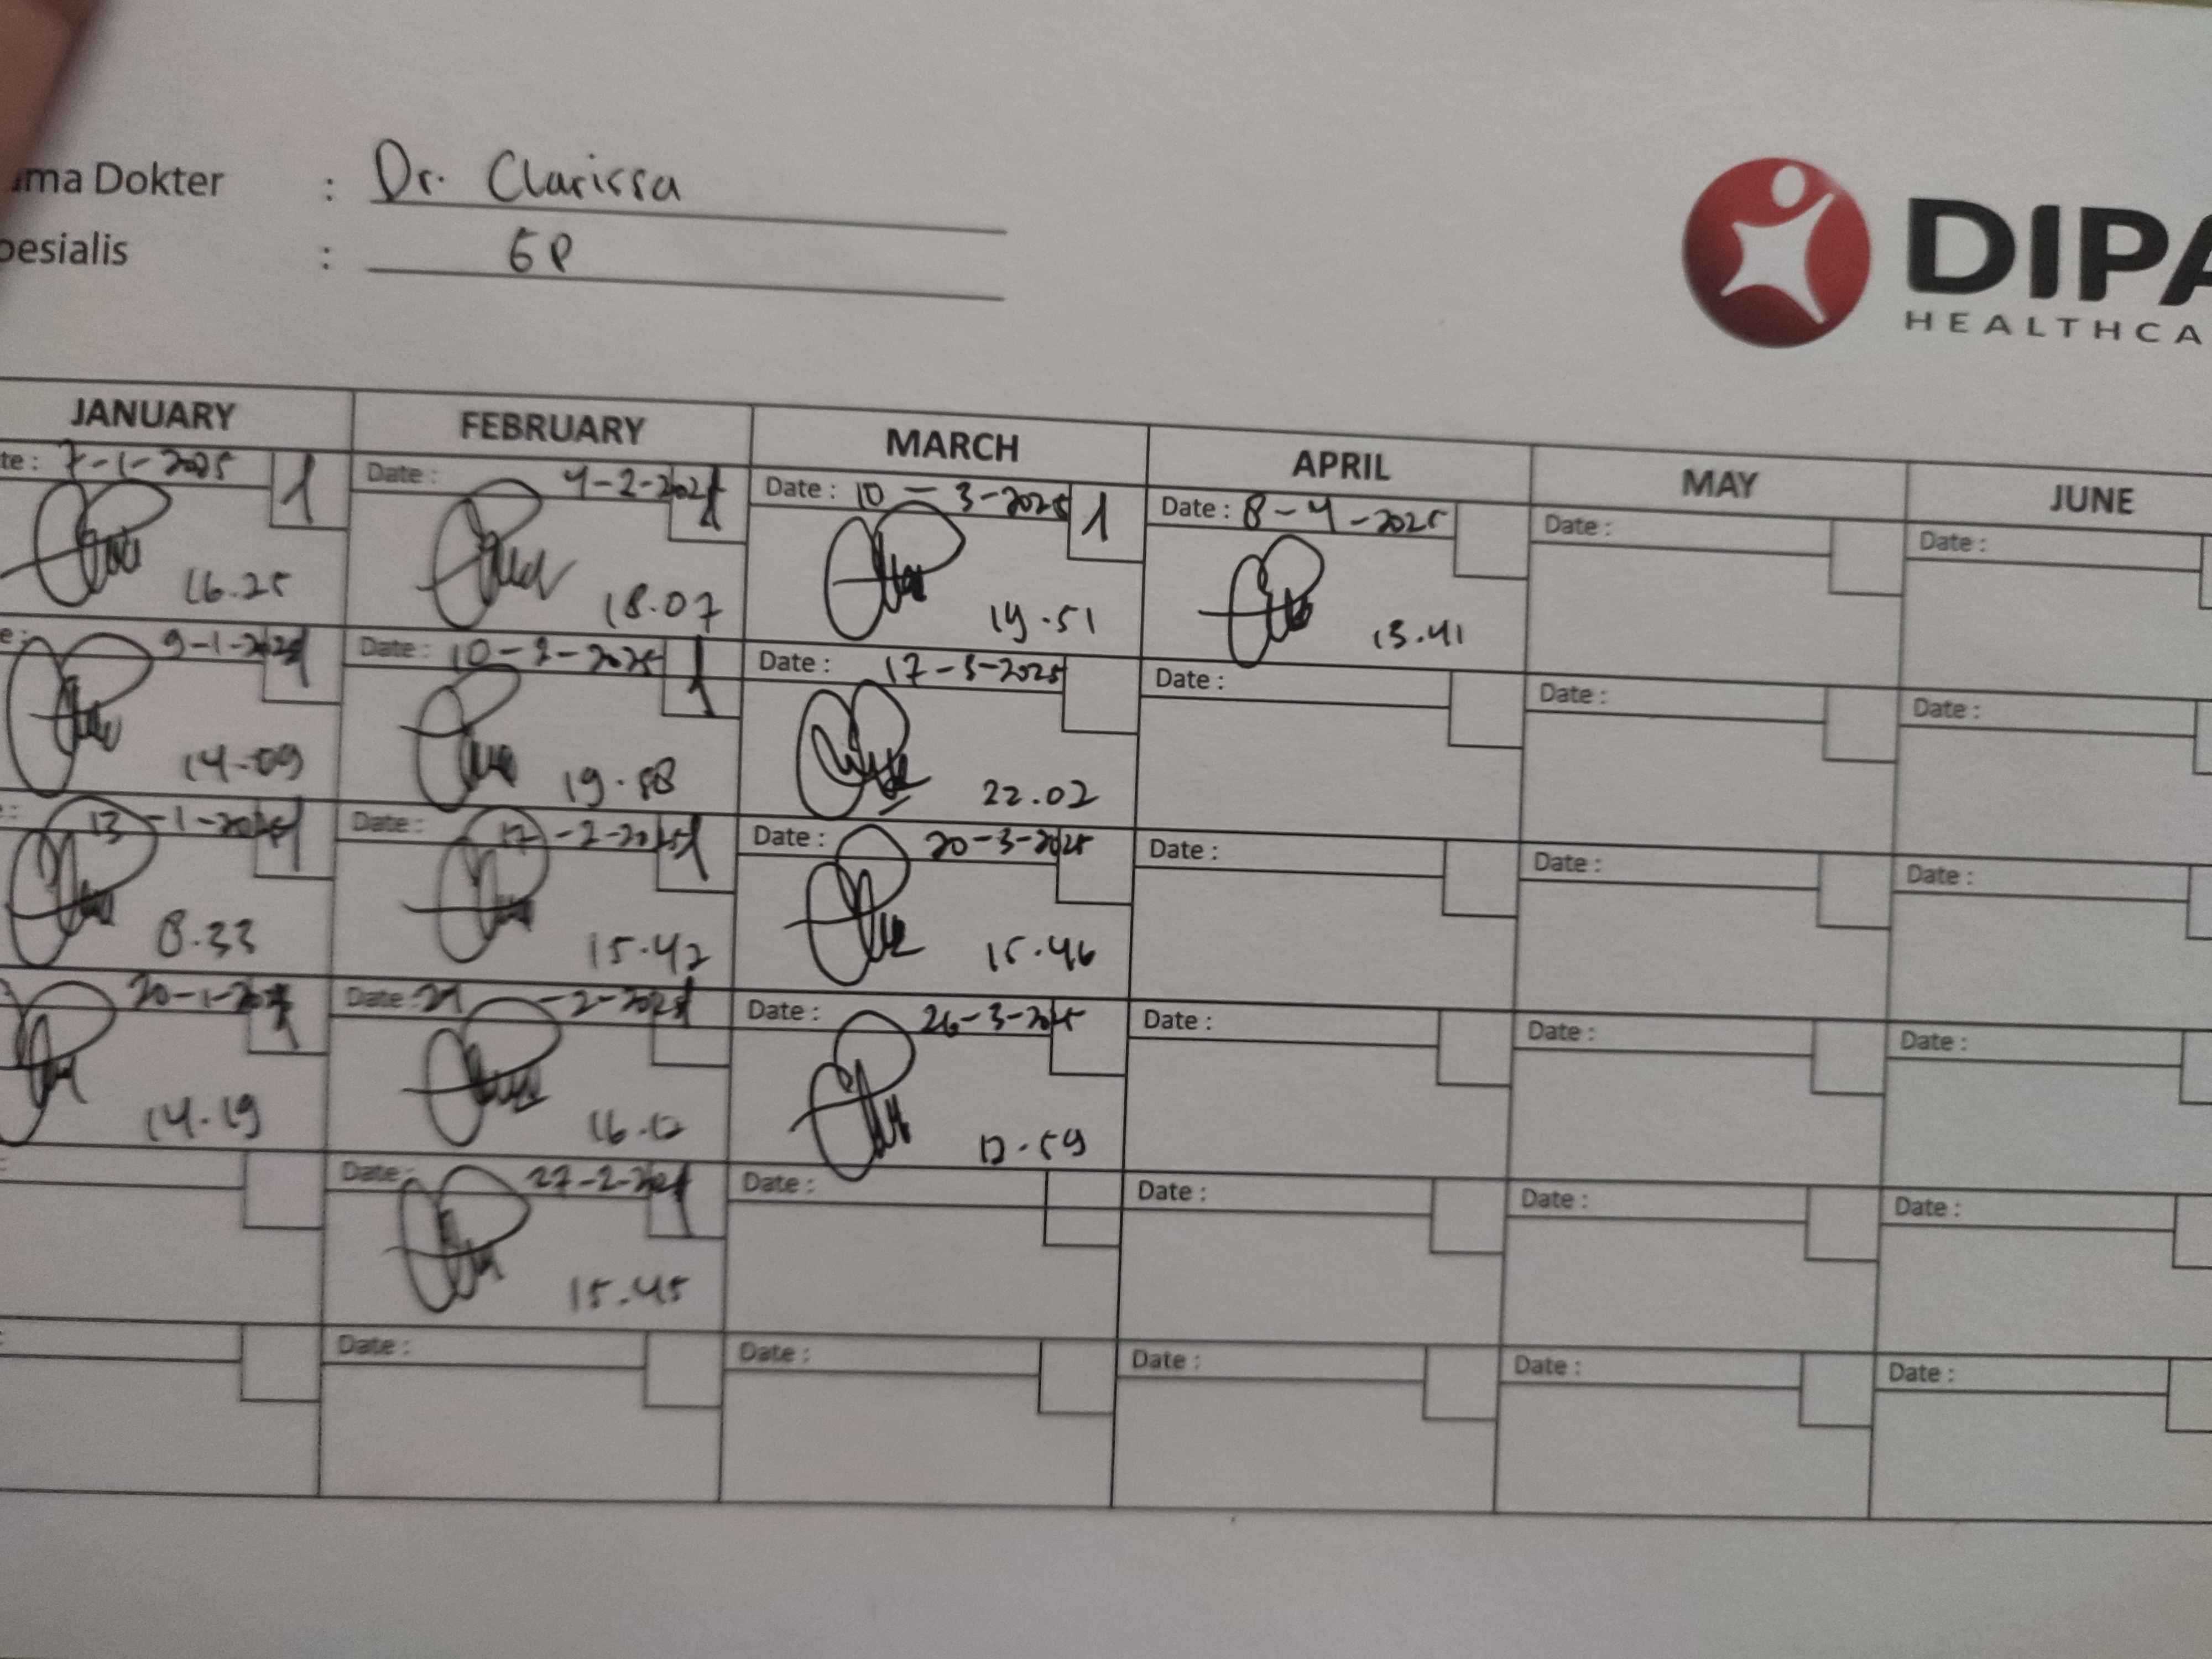 ma Dokter : Dr. Clarissa
pesialis : GP
DIPA
HEALTHCA
JANUARY FEBRUARY MARCH APRIL MAY JUNE
te: 7-1-2025 1 Date: 4-2-2025 1 Date: 10-3-2025 1 Date: 8-4-2025 Date: Date:
16.25 18.07 19.51 13.41
e: 9-1-2025 1 Date: 10-2-2025 1 Date: 17-3-2025 Date: Date: Date:
14.09 19.58 22.02
: 13-1-2025 1 Date: 17-2-2025 1 Date: 20-3-2025 Date: Date: Date:
8.33 15.42 15.46
20-1-2025 1 Date: -2-2025 Date: 26-3-2025 Date: Date: Date:
14.19 16.12 .59
: Date: 27-2-2025 1 Date: Date: Date: Date:
15.45
: Date: Date: Date: Date: Date: